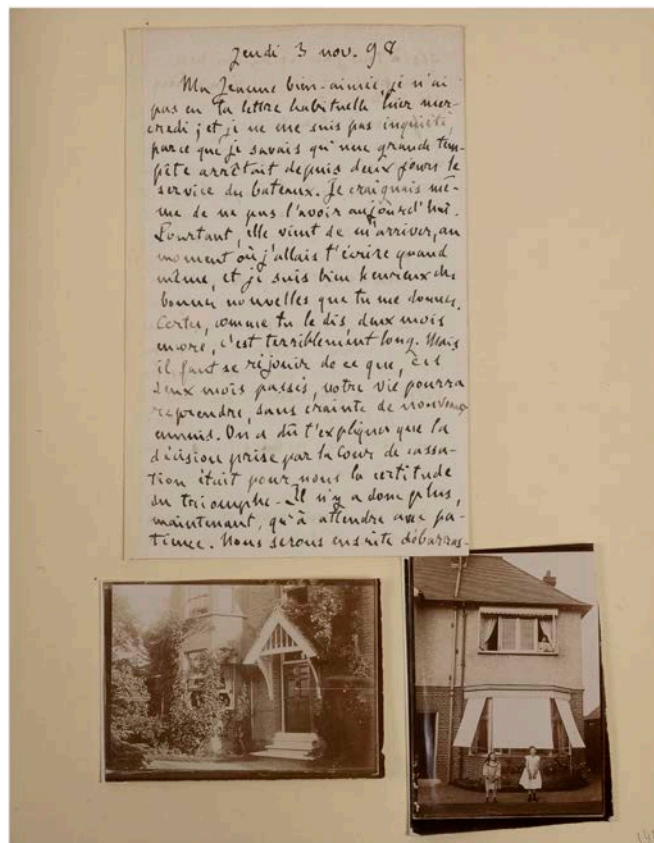 Jeudi 3 nov. 98
Ma Jeanne bien-aimée, je n'ai
pas eu ta lettre habituelle hier mer-
credi ; et je ne me suis pas inquiété,
parce que je savais qu'une grande tem-
pête arrêtait depuis deux jours le
service des bateaux. Je craignais mê-
me de ne pas l'avoir aujourd'hui.
Pourtant, elle vient de m'arriver, au
moment où j'allais t'écrire quand
même, et je suis bien heureux des
bonnes nouvelles que tu me donnes.
Certes, comme tu le dis, deux mois
encore, c'est terriblement long. Mais
il faut se réjouir de ce que, ces
deux mois passés, notre vie pourra
reprendre, sans crainte de nouveaux
ennuis. On a dû t'expliquer que la
décision prise par la Cour de cassa-
tion était pour nous la certitude
du triomphe. Il n'y a donc plus,
maintenant, qu'à attendre avec pa-
tience. Nous serons ensuite débarras-